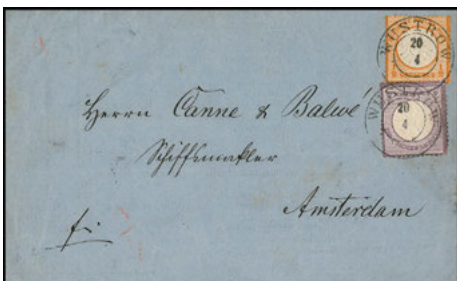 WUSTROW
20
4
WUSTROW
20
4
Herrn Canne & Balwe
Schiffsmakler
Amsterdam
fr.